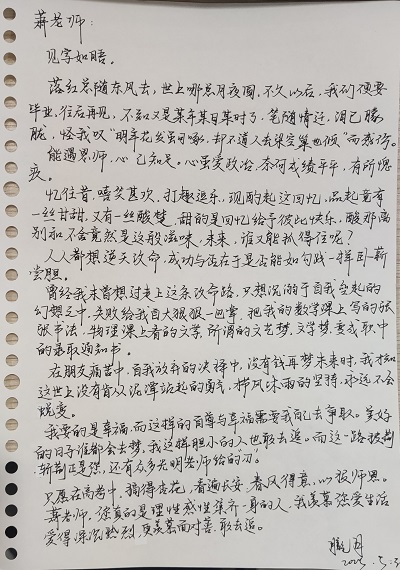 萧老师：
见字如晤。
落红总随东风去，世上哪忌月夜圆，不久以后，我们便要
毕业，往后再见，不知又是某年某日某时了。笔随情迁，泪已朦
胧，怪我叹“明年花发虽可啄，却不道人去梁空巢也倾”而感伤。
能遇累师，心已知足。心虽爱政治，奈何成绩平平，有所愧
疚。
忆往昔，嘻笑甚欢，打趣逗乐，现酌起这回忆，品起竟有
一丝甘甜，又有一丝酸楚，甜的是回忆给予彼此快乐，酸那离
别和不舍竟然是这般滋味，未来，谁又能抓得住呢？
人人都想逆天改命，成功与否在于是否能如勾践一样卧薪
尝胆。
曾经我未曾想过走上这条改命路，只想沉溺于自我垒起的
幻想之中，失败给我自大狠狠一巴掌，把我的数学课上写的张
张书法，物理课上看的文学，所谓的文艺梦，文学梦，变成职中
的录取通知书。
在朋友痛苦中，自我放弃的决择中，没有钱再梦未来时，我才知
这世上没有肯从泥潭站起的勇气，栉风沐雨的坚持，永远不会
蜕变。
我要的是幸福，而这样的自尊与幸福需要我自己去争取。美好
的旧日谁都会去梦，我这样胆小的人也敢去追。而这一路披荆
斩荆正是您，还有众多无明老师给的“刀”。
只愿在高考中，摘得杏花，看遍长安，春风得意，以报师恩。
萧老师，您真的是理性感性集齐一身的人，我羡慕您爱生活
爱得深沉热烈，更羡慕面对善，敢去追。